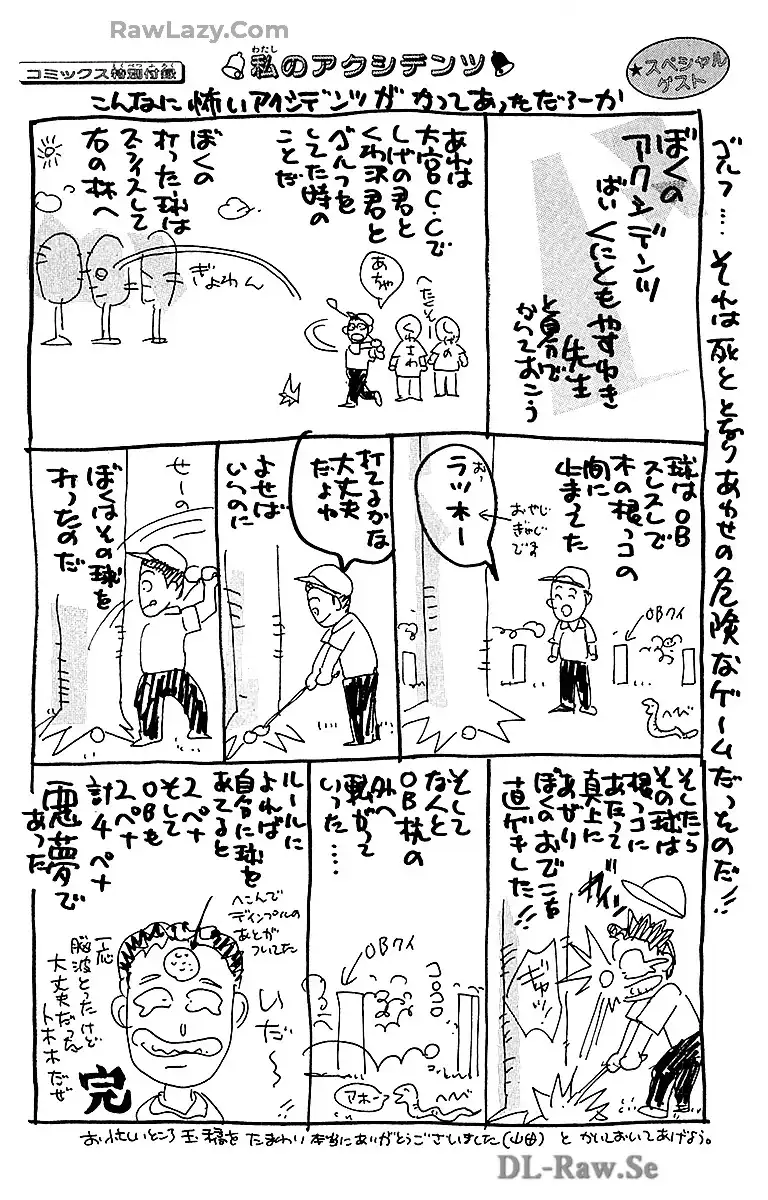 RawLazy.Com
コミックス特別付録
とくべつふろく
私のアクシデンツ
わたし
★スペシャル
ゲスト
こんなに怖いアクシデンツがかつてあっただろーか
ゴルフ…それは死ととなりあわせの危険なゲームだっそのだ!!
ぼくの
アクシデンツ
ばい くにともやすゆき
先生
と自分で
かいておこう
あれは
大宮C.C.で
しげの君と
くわ沢君と
ゴルフを
してた時の
ことだ
ぼくの
打った球は
スライスして
右の林へ
あちゃ
へたくそー
しげの
くわさわ
ぎょわん
球はOB
スレスレで
木の根っコの
間に
止まってた
おっ
ラッキー
おやじ
ぎゃぐ
です
OBクイ
へび
打てるかな
大丈夫
だよね
よせば
いいのに
せーの
ぼくはその球を
打ったのだ
そしたら
その球は
根っコに
あたって
真上に
あがり
ぼくのおでこを
直ゲキした!!
ガイン
ギャッ
そして
なんと
OB杭の
外へ
転がって
いった……
OBクイ
コロコロ
アホー
へび
ルールに
よれば
自分に球を
あてると
2ペナ
そして
OBも
2ペナ
計4ペナ
悪夢で
あった
へこんで
ディンプルの
あとが
ついてた
いだ〜
一応
脳波とったけど
大丈夫だった
トホホだぜ
完
お忙しいところ玉稿をたまわり本当にありがとうございました(山田)とかいておいてあげよう。
DL-Raw.Se